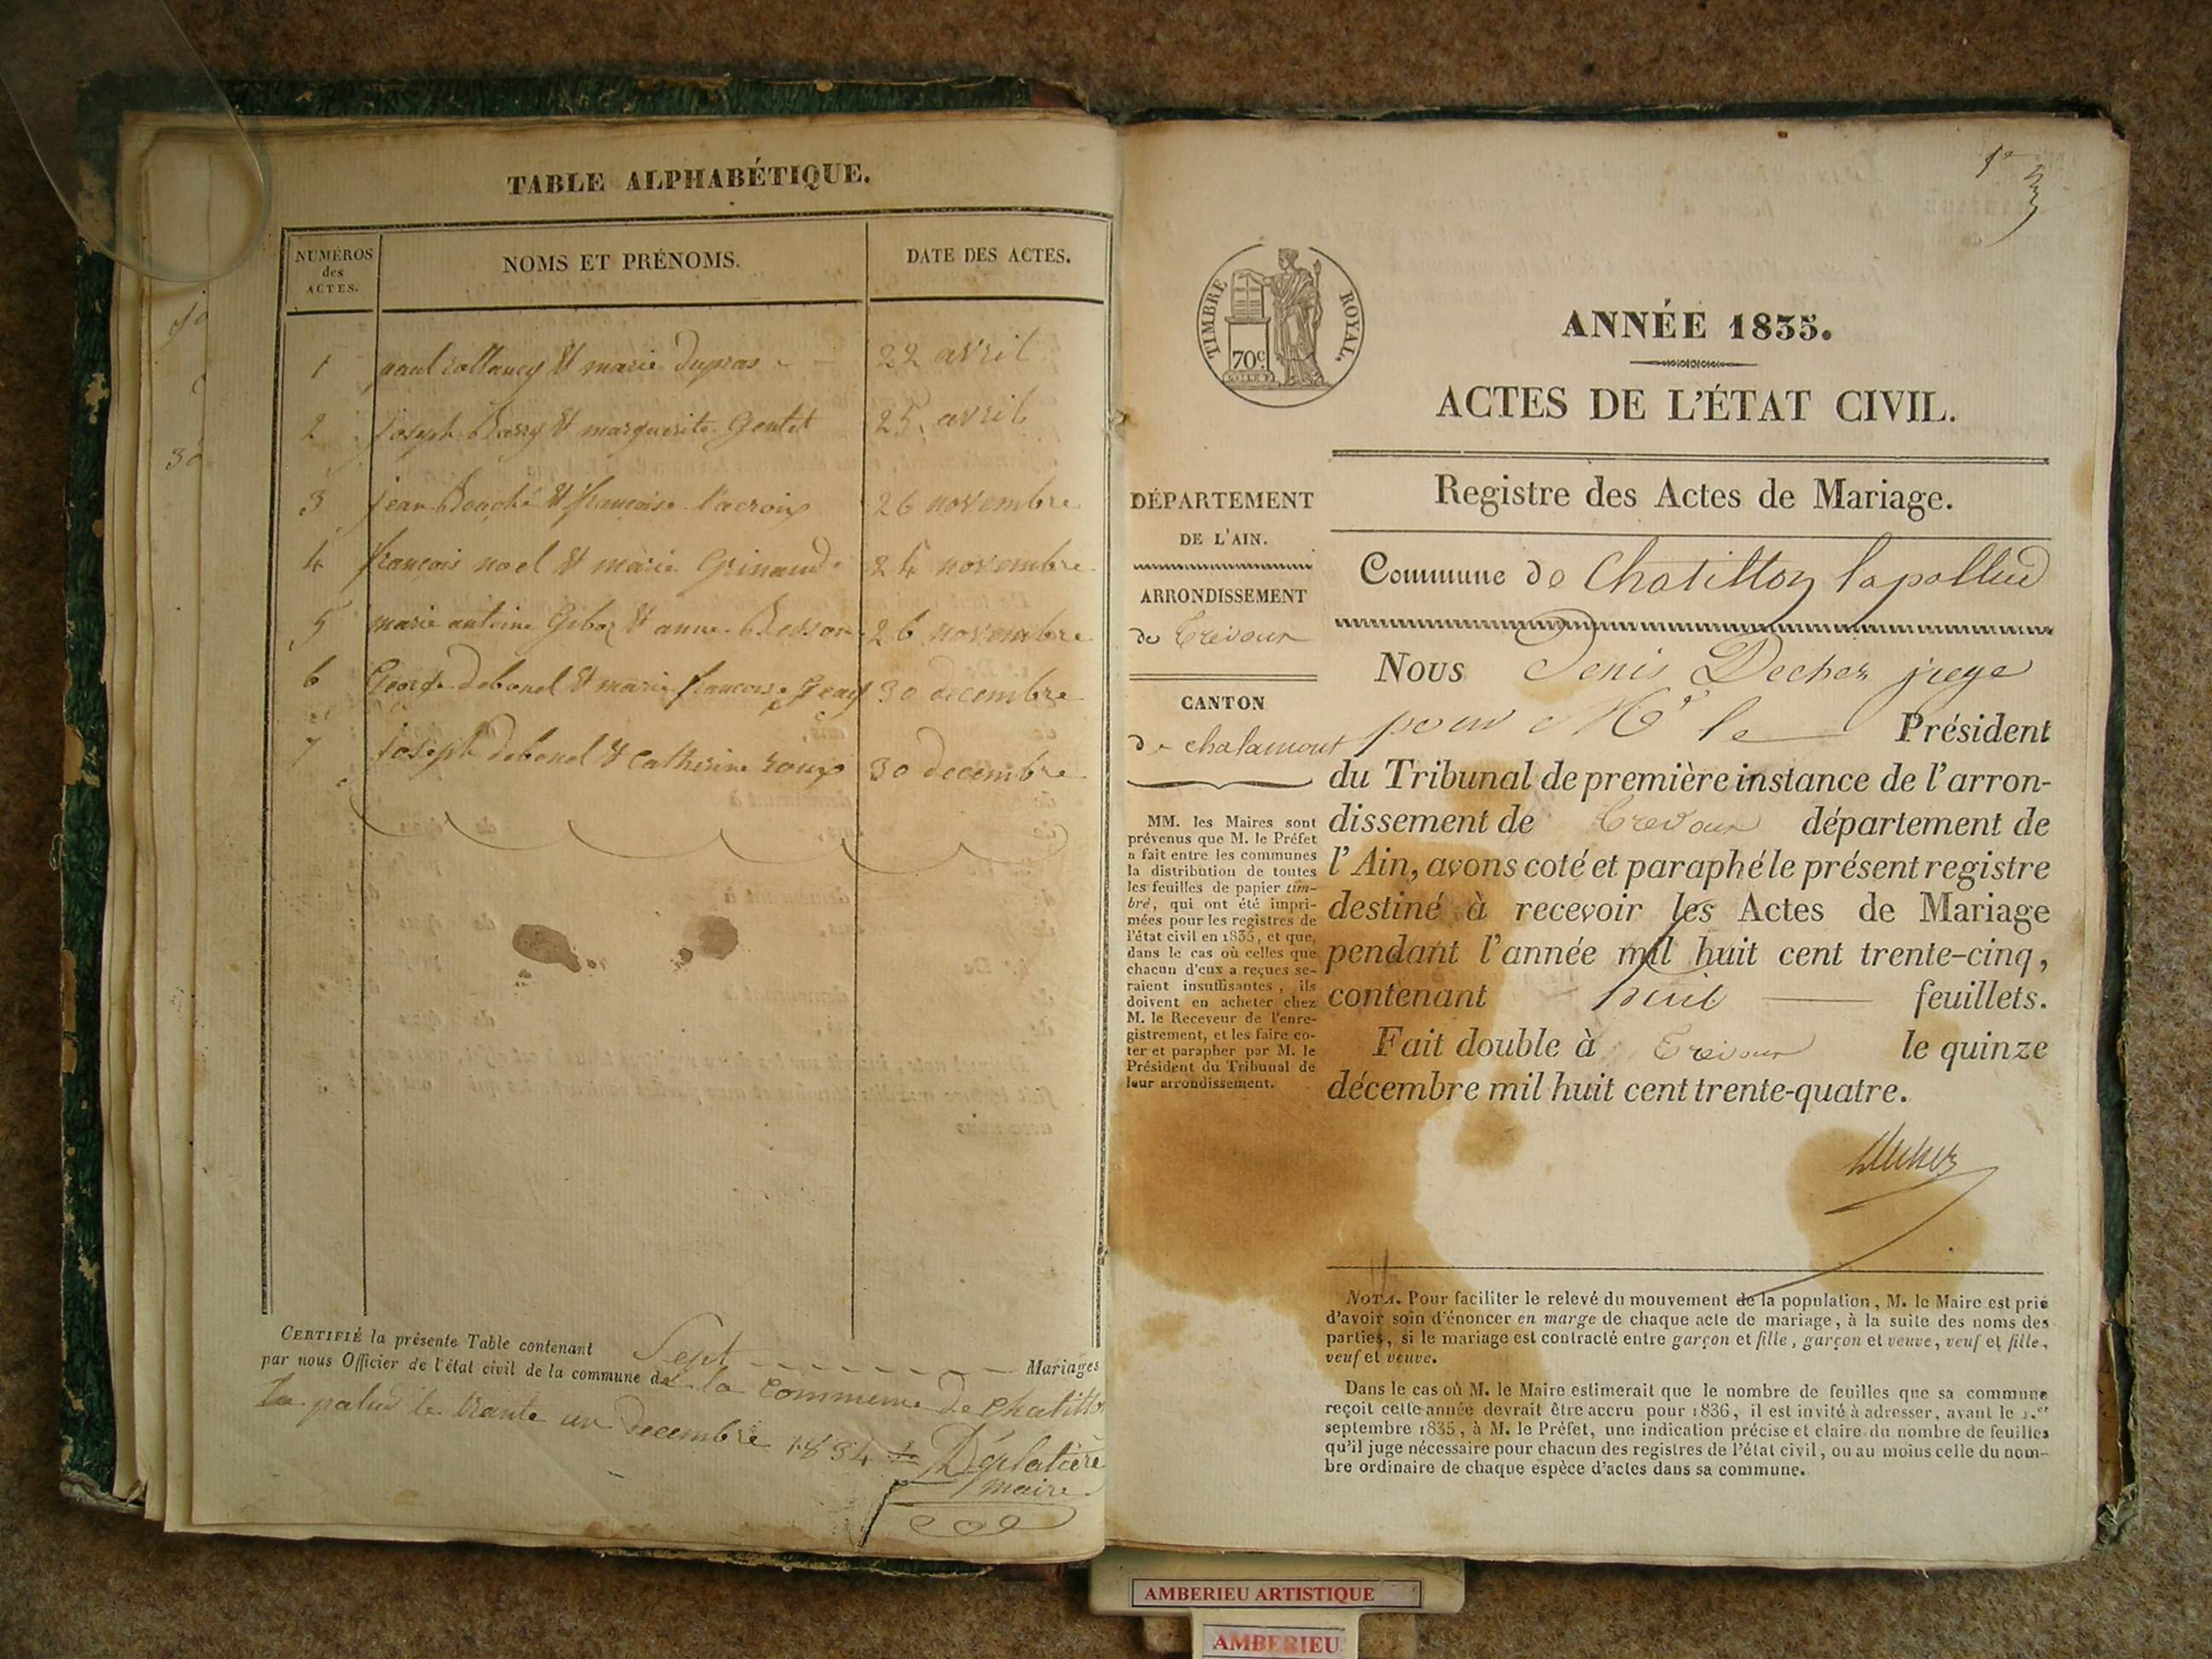 TABLE ALPHABÉTIQUE.
NUMÉROS
des
ACTES.
NOMS ET PRÉNOMS.
DATE DES ACTES.
1 paul & marie dupras 22 avril
2 joseph & marguerite Gentet 25 avril
3 jean Bouché & françoise Lacroix 26 novembre
4 françois noel & marie Grinand 24 novembre
5 marie antoine & anne Besson 26 novembre
6 George debonel & marie francoise 30 decembre
7 joseph debonel & Catherine roux 30 decembre
CERTIFIÉ la présente Table contenant Sept Mariages
par nous Officier de l'état civil de la commune de la Commune de Chatillon
La palud le trante un decembre 1834
Déplatière
maire
ANNÉE 1835.
TIMBRE ROYAL.
70c.
ACTES DE L'ÉTAT CIVIL.
Registre des Actes de Mariage.
DÉPARTEMENT
DE L'AIN.
ARRONDISSEMENT
de Trévoux
CANTON
de chalamont
MM. les Maires sont
prévenus que M. le Préfet
a fait entre les communes
la distribution de toutes
les feuilles de papier tim-
bré, qui ont été impri-
mées pour les registres de
l'état civil en 1835, et que,
dans le cas où celles que
chacun d'eux a reçues se-
raient insuffisantes, ils
doivent en acheter chez
M. le Receveur de l'enre-
gistrement, et les faire co-
ter et parapher par M. le
Président du Tribunal de
leur arrondissement.
Commune de Chatillon lapallud
Nous Denis Decher juge
pour Mr le Président
du Tribunal de première instance de l'arron-
dissement de Trevoux département de
l'Ain, avons coté et paraphé le présent registre
destiné à recevoir les Actes de Mariage
pendant l'année mil huit cent trente-cinq,
contenant huit feuillets.
Fait double à Trévoux le quinze
décembre mil huit cent trente-quatre.
NOTA. Pour faciliter le relevé du mouvement de la population, M. le Maire est prié
d'avoir soin d'énoncer en marge de chaque acte de mariage, à la suite des noms des
parties, si le mariage est contracté entre garçon et fille, garçon et veuve, veuf et fille,
veuf et veuve.
Dans le cas où M. le Maire estimerait que le nombre de feuilles que sa commune
reçoit cette année devrait être accru pour 1836, il est invité à adresser, avant le 1.er
septembre 1835, à M. le Préfet, une indication précise et claire du nombre de feuilles
qu'il juge nécessaire pour chacun des registres de l'état civil, ou au moins celle du nom-
bre ordinaire de chaque espèce d'actes dans sa commune.
AMBERIEU ARTISTIQUE
AMBERIEU